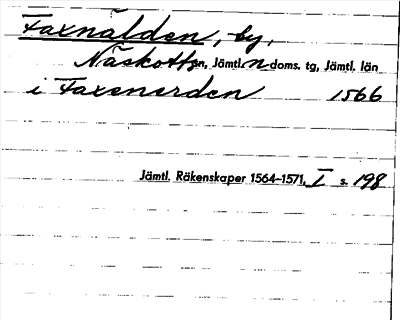 Faxnälden, by,
Näskotts sn, Jämtl. n doms. tg, Jämtl. län
i Faxenerden 1566
Jämtl. Räkenskaper 1564-1571, I s. 198